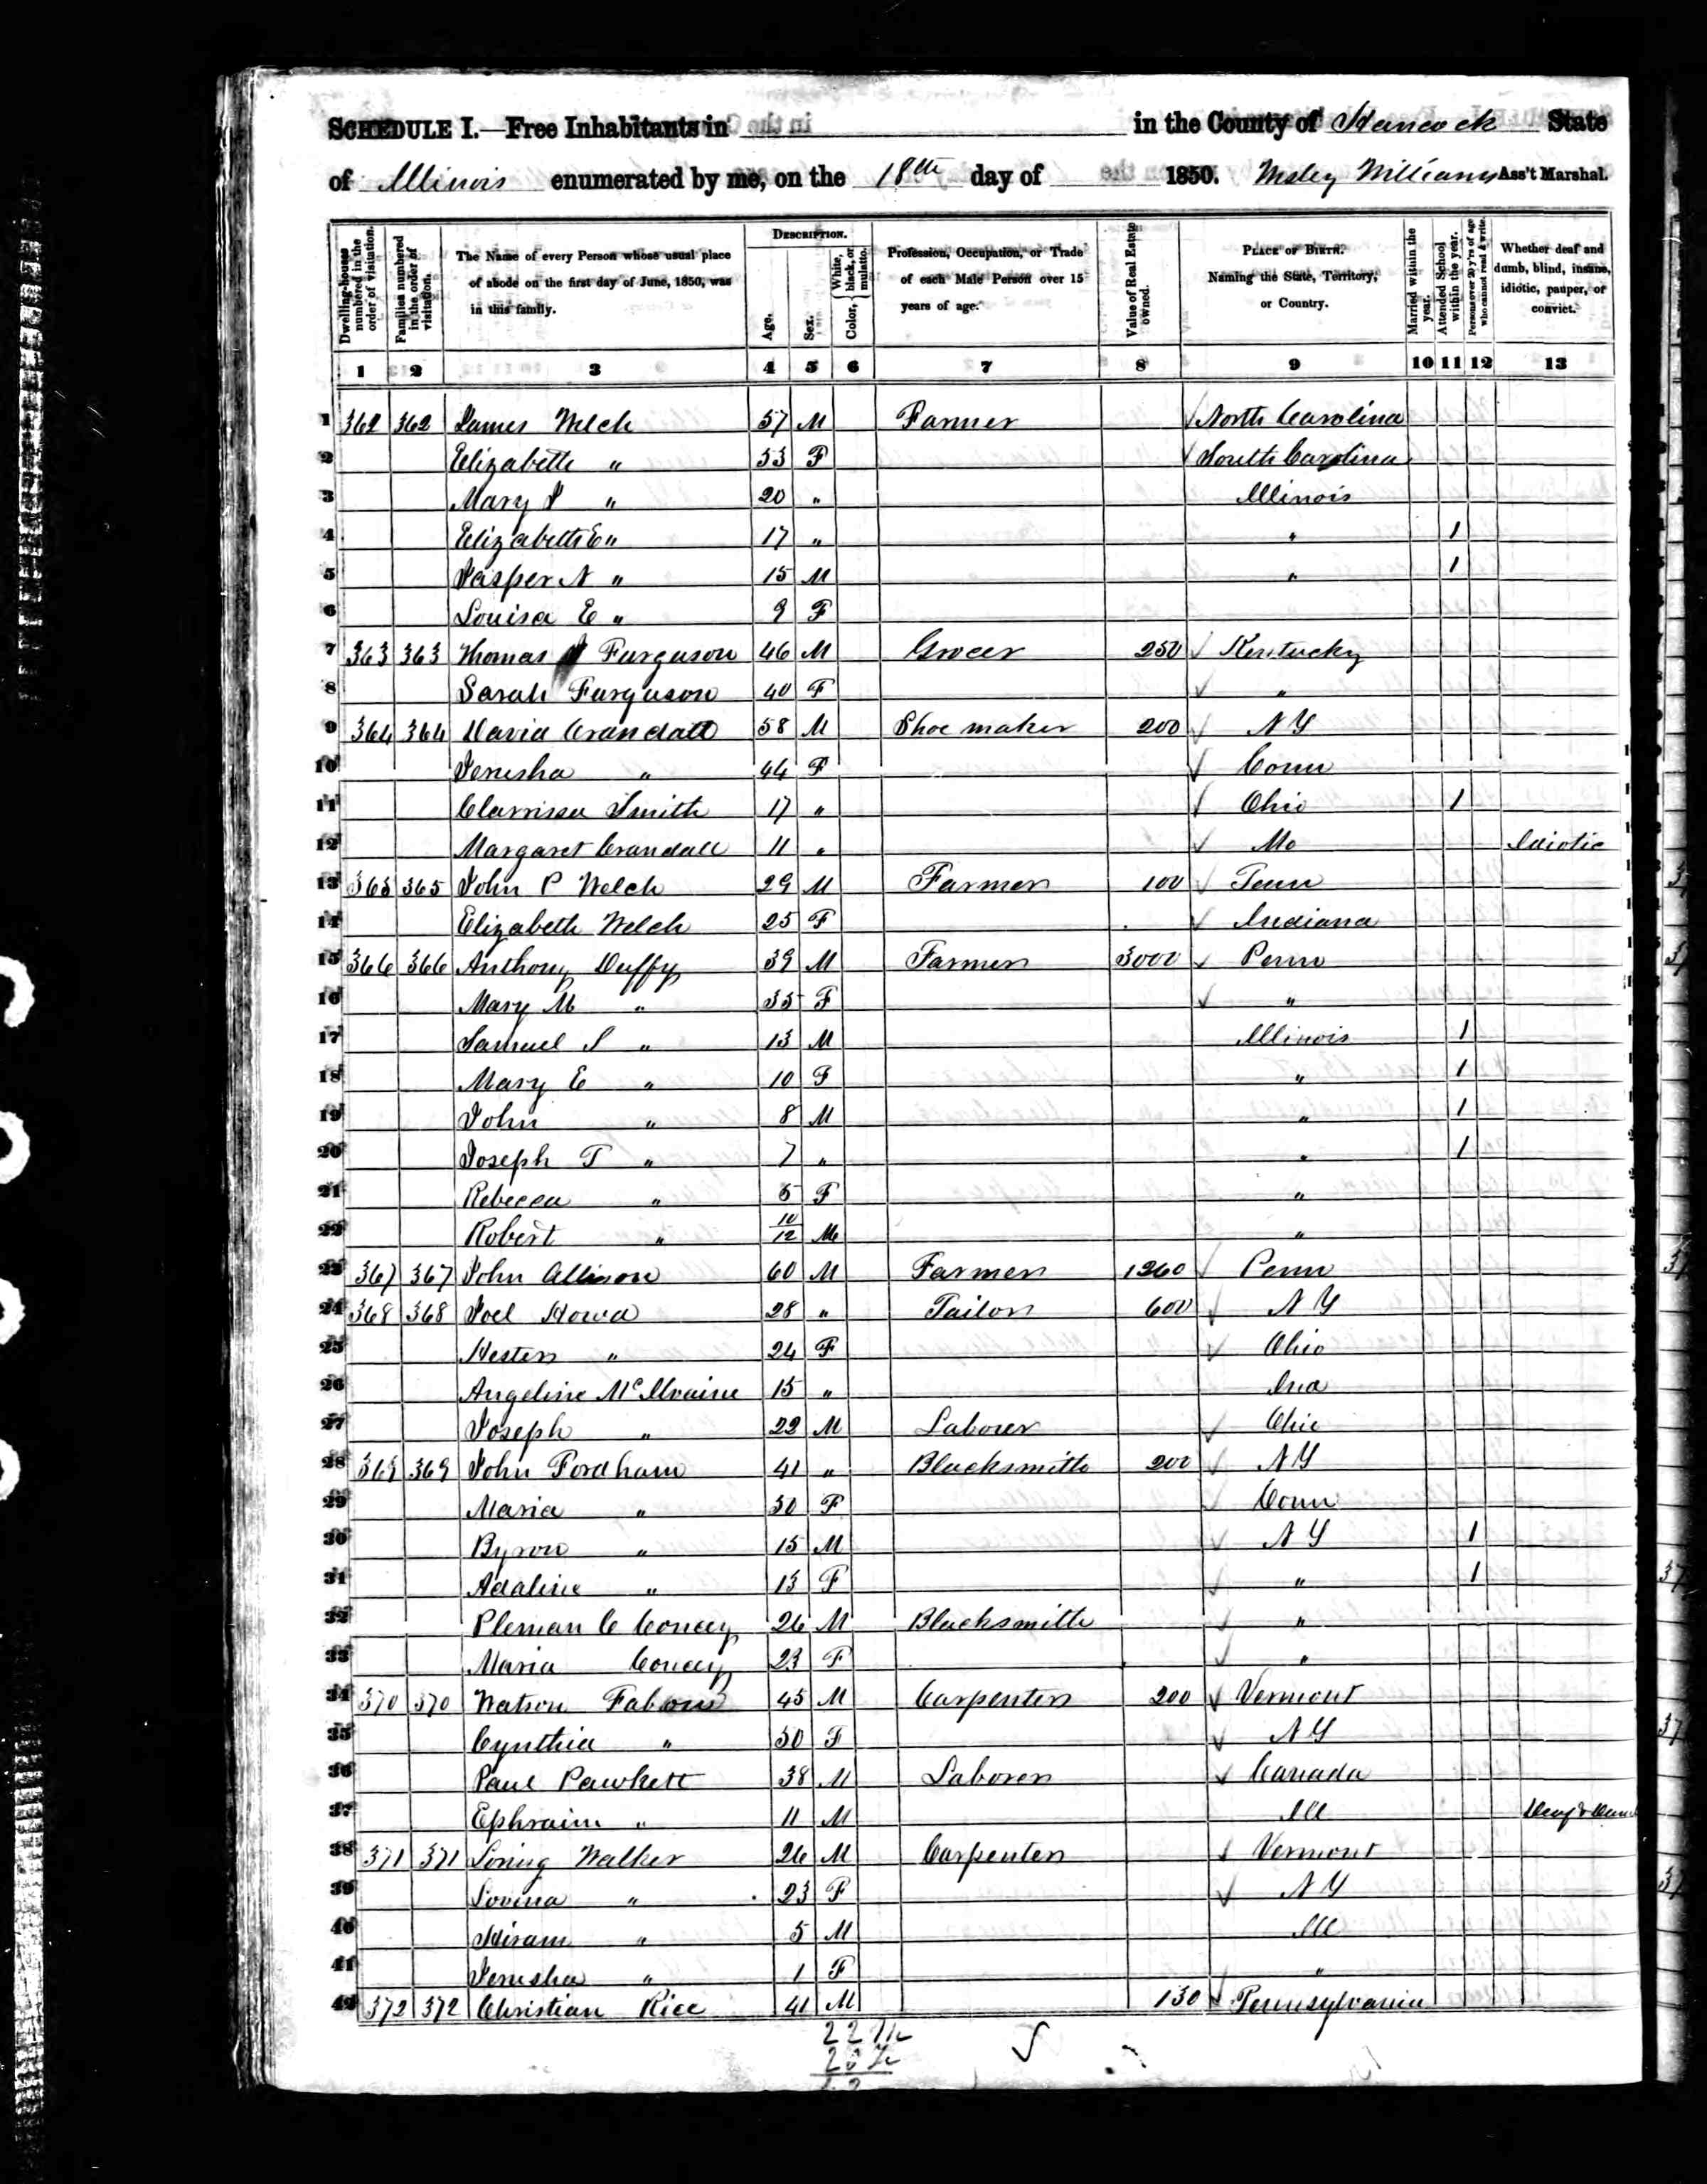 SCHEDULE I.—Free Inhabitants in in the County of Hancock State
of Illinois enumerated by me, on the 18th day of 1850. Wesley Williams Ass't Marshal.
Dwelling-houses numbered in the order of visitation.
Families numbered in the order of visitation.
The Name of every Person whose usual place of abode on the first day of June, 1850, was in this family.
DESCRIPTION.
Age.
Sex.
Color, White, black, or mulatto.
Profession, Occupation, or Trade of each Male Person over 15 years of age.
Value of Real Estate owned.
PLACE OF BIRTH. Naming the State, Territory, or Country.
Married within the year.
Attended School within the year.
Persons over 20 y'rs of age who cannot read & write.
Whether deaf and dumb, blind, insane, idiotic, pauper, or convict.
1 2 3 4 5 6 7 8 9 10 11 12 13
1 362 362 James Welch 57 M Farmer North Carolina
2 Elizabeth " 53 F South Carolina
3 Mary J " 20 " Illinois
4 Elizabeth E " 17 " " 1
5 Jasper N " 15 M " 1
6 Louisa E " 9 F
7 363 363 Thomas Furguson 46 M Grocer 250 Kentucky
8 Sarah Furguson 40 F "
9 364 364 David Crandall 58 M Shoe maker 200 N Y
10 Jerusha " 44 F Conn
11 Clarrissa Smith 17 " Ohio 1
12 Margaret Crandall 11 " Mo Idiotic
13 365 365 John P Welch 29 M Farmer 100 Tenn
14 Elizabeth Welch 25 F Indiana
15 366 366 Anthony Duffy 39 M Farmer 3000 Penn
16 Mary M " 35 F "
17 Samuel S " 13 M Illinois 1
18 Mary E " 10 F " 1
19 John " 8 M " 1
20 Joseph T " 7 " " 1
21 Rebecca " 5 F "
22 Robert " 10/12 M "
23 367 367 John Allison 60 M Farmer 1260 Penn
24 368 368 Joel Howd 28 " Tailor 600 N Y
25 Hester " 24 F Ohio
26 Angeline McIlvaine 15 " Ind
27 Joseph " 22 M Laborer Ohio
28 369 369 John Fordham 41 " Blacksmith 200 N Y
29 Maria " 30 F Conn
30 Byron " 15 M N Y 1
31 Adaline " 13 F " 1
32 Pleman C Concey 26 M Blacksmith "
33 Maria Concey 23 F "
34 370 370 Watson 45 M Carpenter 200 Vermont
35 Cynthia " 50 F N Y
36 Paul Pawkett 38 M Laborer Canada
37 Ephraim " 11 M Ill Deaf & Dumb
38 371 371 Loring Walker 26 M Carpenter Vermont
39 Lovina " 23 F N Y
40 Hiram " 5 M Ill
41 Jerusha " 1 F "
42 372 372 Christian Rice 41 M 130 Pennsylvania
22 M
20